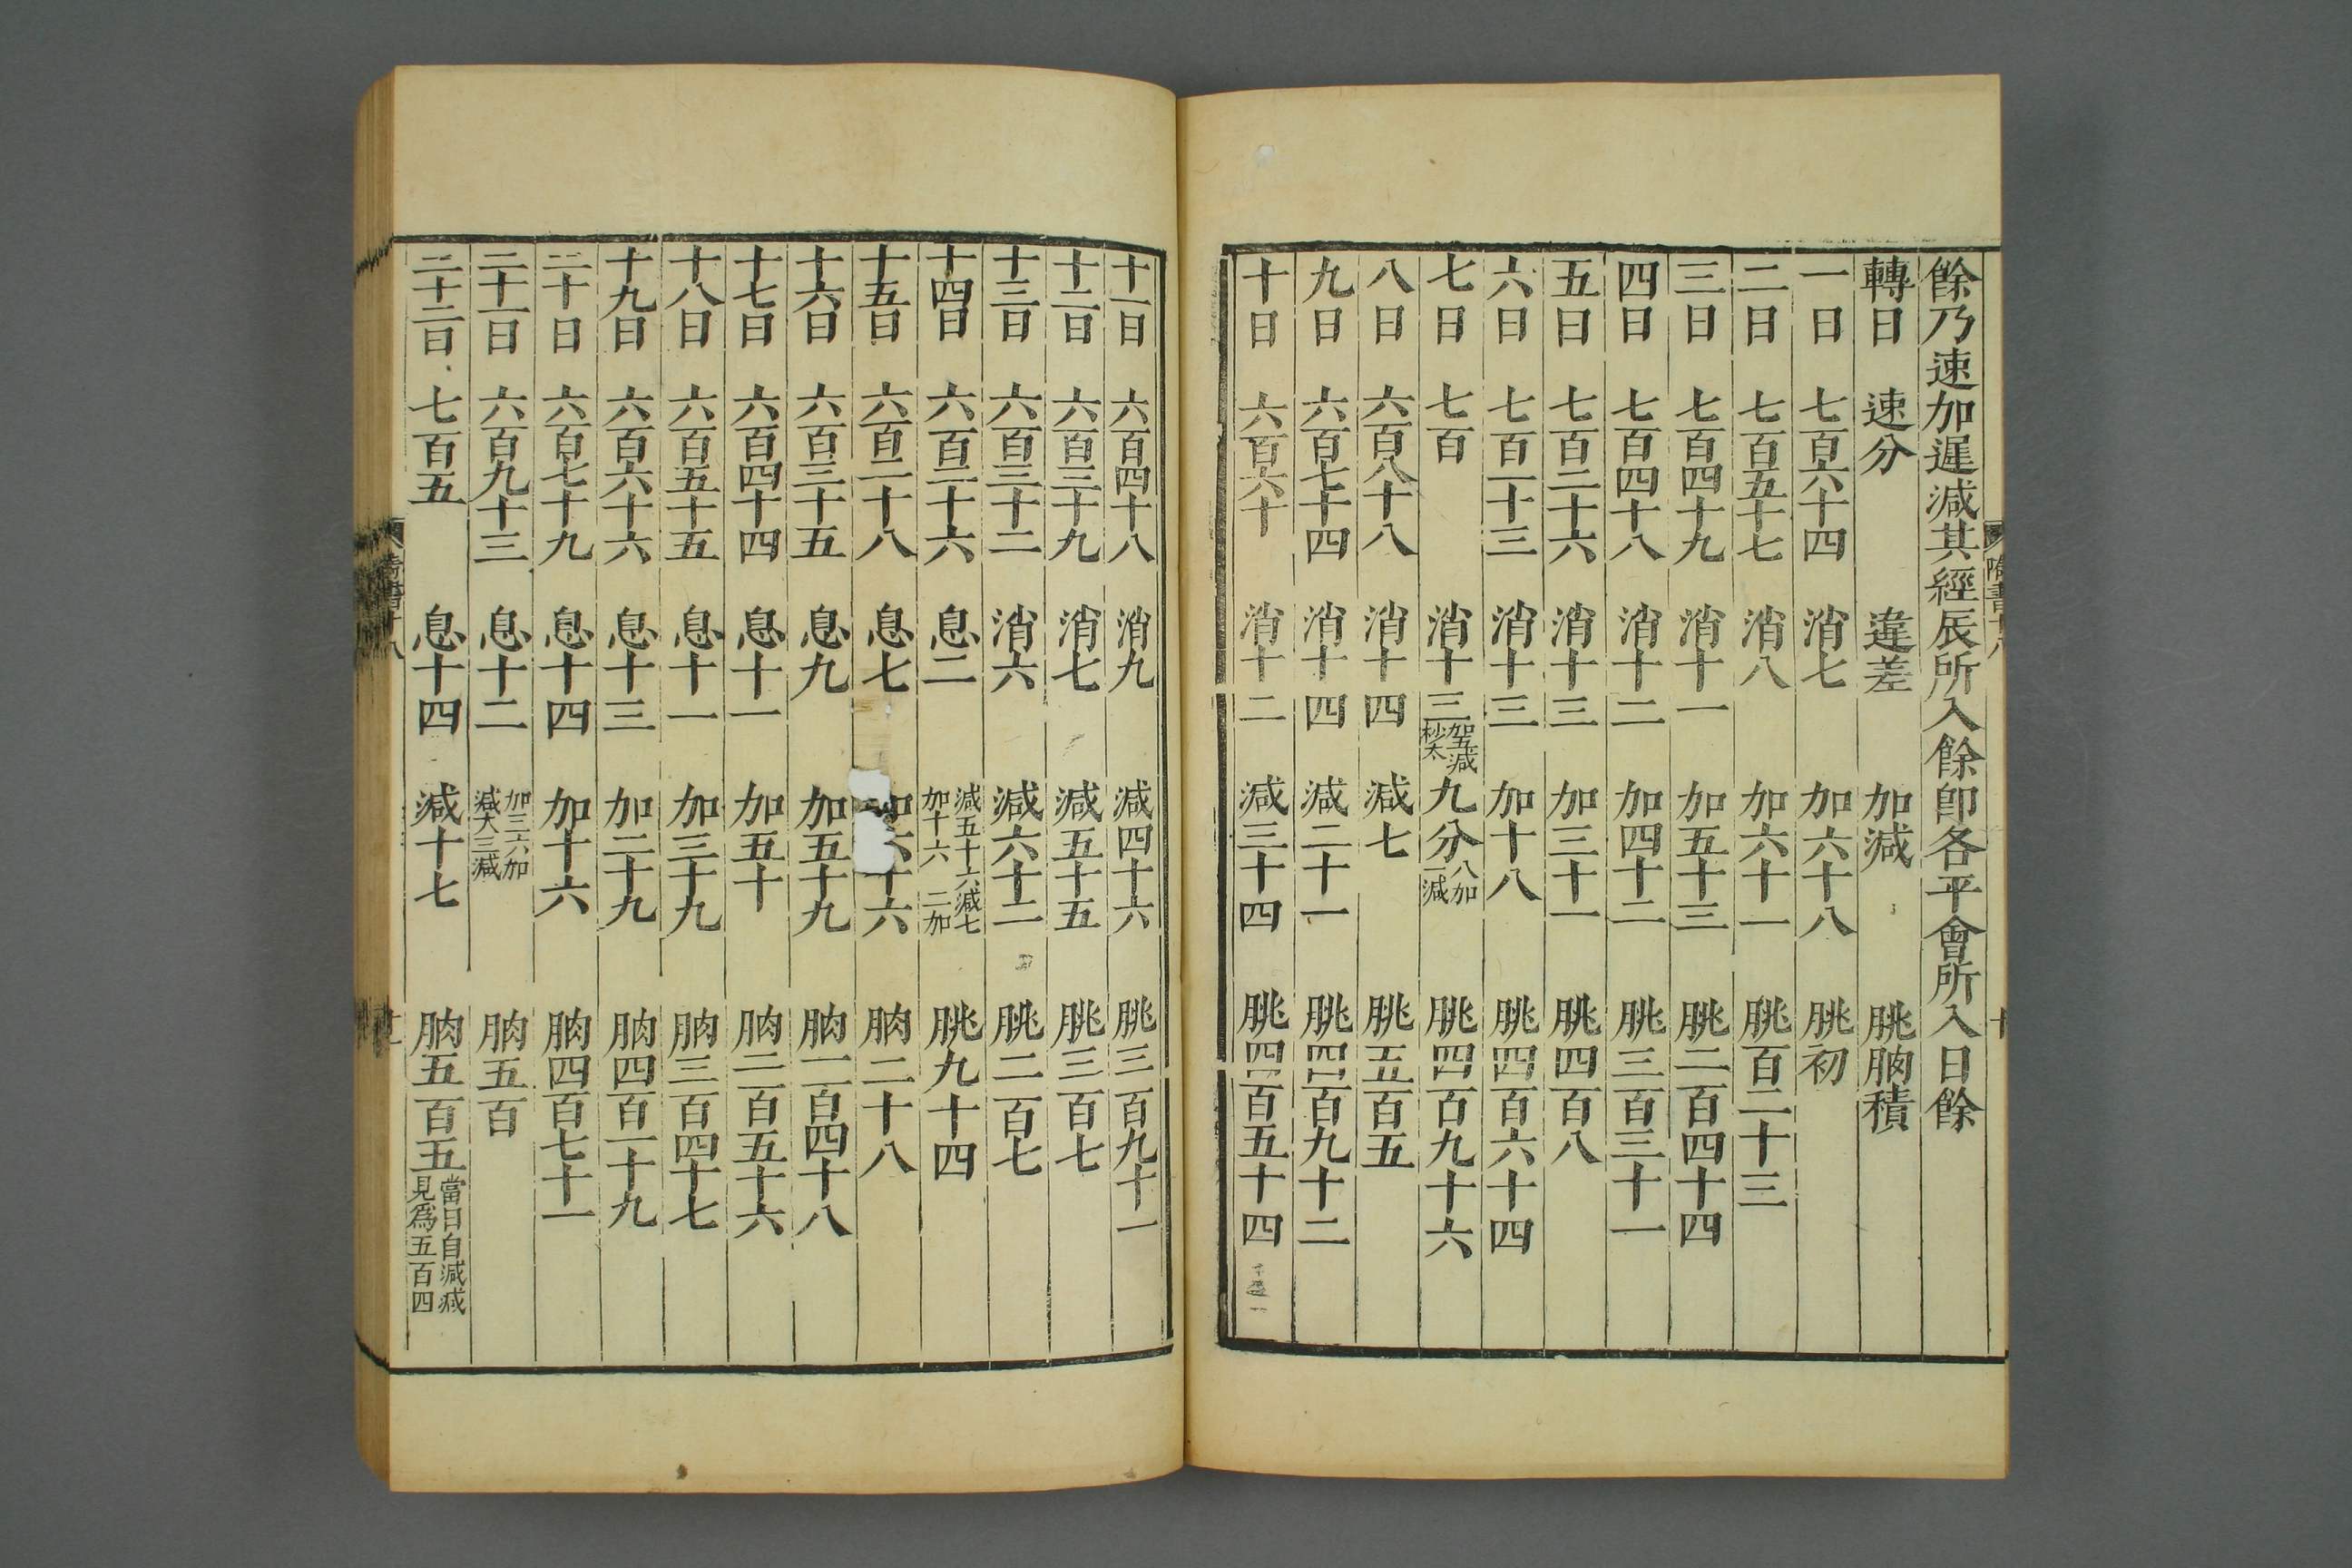 餘乃速加遲減其經辰所入餘卽各平會所入日餘
轉日 速分 違差 加減 朓朒積
一日 七百六十四 消七 加六十八 朓初
二日 七百五十七 消八 加六十一 朓百二十三
三日 七百四十九 消十一 加五十三 朓二百四十四
四日 七百四十八 消十二 加四十二 朓三百三十一
五日 七百二十六 消十三 加三十一 朓四百八
六日 七百一十三 消十三 加十八 朓四百六十四
七日 七百 消十三加五減秒太九分八加一減 朓四百九十六
八日 六百八十八 消十四 減七 朓五百五
九日 六百七十四 消十四 減二十一 朓四百九十二
十日 六百六十 消十二 減三十四 朓四百五十四
隋書十八 十
十一日 六百四十八 消九 減四十六 朓三百九十一
十二日 六百三十九 消七 減五十五 朓三百七
十三日 六百三十二 消六 減六十二 朓二百七
十四日 六百二十六 息二 減五十六減七加十六 二加 朓九十四
十五日 六百二十八 息七 加六十六 朒二十八
十六日 六百三十五 息九 加五十九 朒一百四十八
十七日 六百四十四 息十一 加五十 朒二百五十六
十八日 六百五十五 息十一 加三十九 朒三百四十七
十九日 六百六十六 息十三 加二十九 朒四百一十九
二十日 六百七十九 息十四 加十六 朒四百七十一
二十一日 六百九十三 息十二 加三六加減大三減 朒五百
二十二日 七百五 息十四 減十七 朒五百五當日自減減見爲五百四